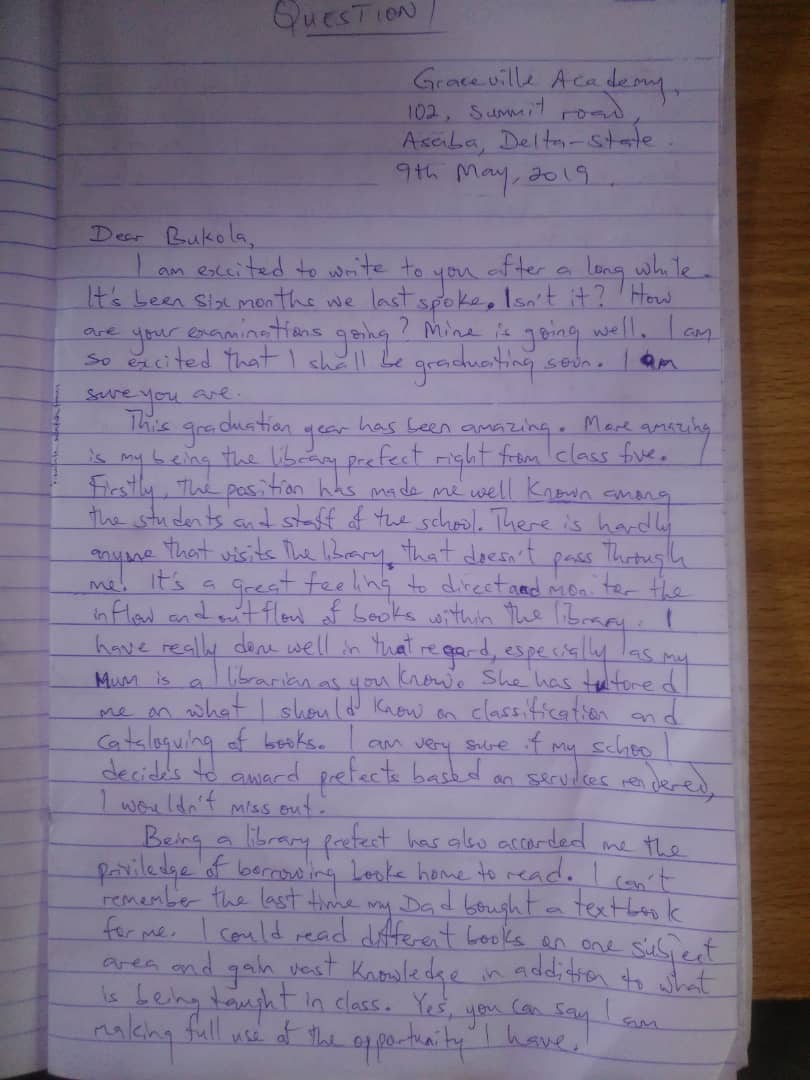 QUESTION 1
Graceville Academy,
102, Summit road,
Asaba, Delta-State.
9th May, 2019.
Dear Bukola,
I am excited to write to you after a long while.
It's been six months we last spoke. Isn't it? How
are your examinations going? Mine is going well. I am
so excited that I shall be graduating soon. I am
sure you are.
This graduation year has been amazing. More amazing
is my being the library prefect right from class five.
Firstly, the position has made me well known among
the students and staff of the school. There is hardly
anyone that visits the library, that doesn't pass through
me! It's a great feeling to direct and moniter the
inflow and outflow of books within the library. I
have really done well in that regard, especially as my
Mum is a librarian as you know. She has tutored
me on what I should know on classification and
cataloguing of books. I am very sure if my school
decides to award prefects based on services rendered,
I wouldn't miss out.
Being a library prefect has also accorded me the
priviledge of borrowing books home to read. I can't
remember the last time my Dad bought a textbook
for me. I could read different books on one subject
area and gain vast knowledge in addition to what
is being taught in class. Yes, you can say I am
making full use of the opportunity I have.